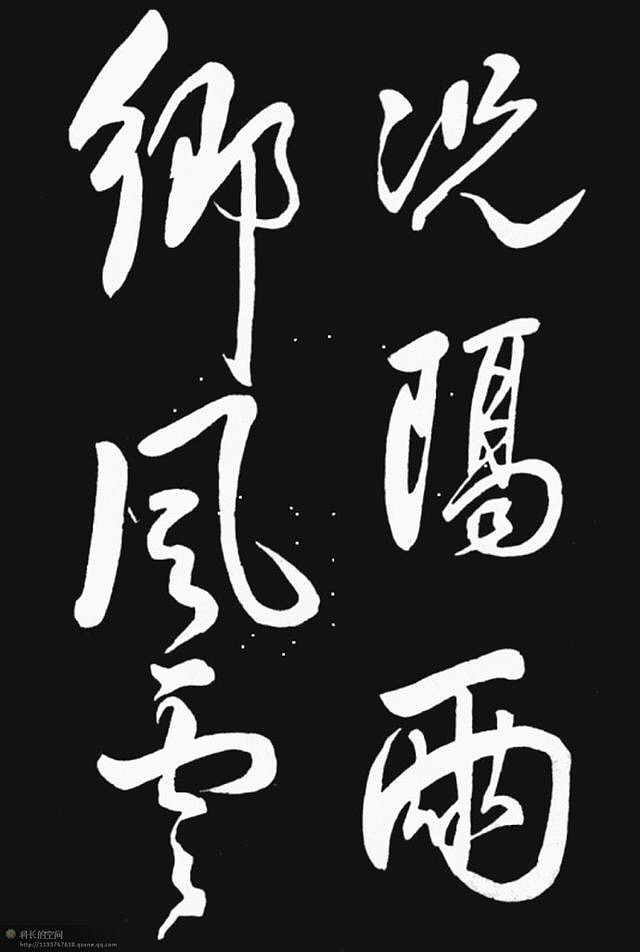 况隔兩
鄉風雲
科长的空间
http://1193767618.qzone.qq.com